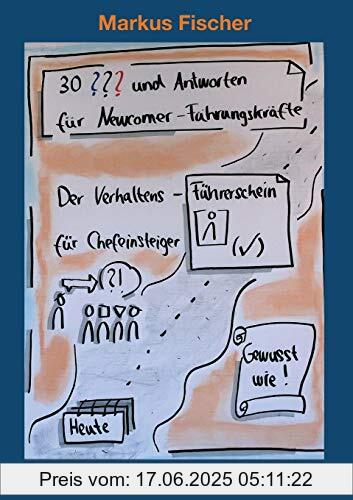 Markus Fischer
30 ??? und Antworten
für Newcomer-Führungskräfte
Der Verhaltens-Führerschein
(✓)
für Chefeinsteiger
?!
Gewusst
wie!
Heute
Preis vom: 17.06.2025 05:11:22